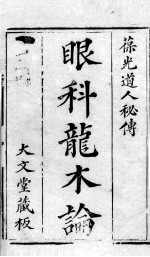 葆光道人秘傳
眼科龍木論
大文堂藏板